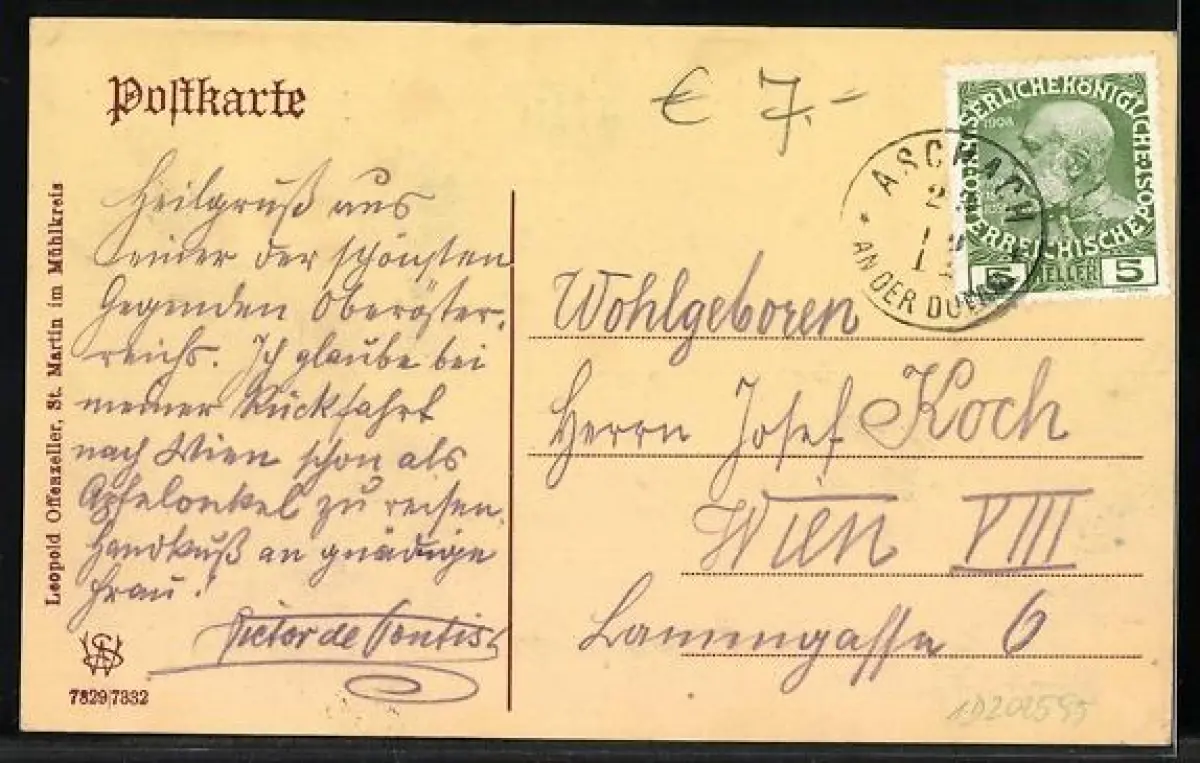 Postkarte
€ 7.-
Heilgruß aus
einer der schönsten
Gegenden Oberöster-
reichs. Ich glaube bei
meiner Rückfahrt
nach Wien schon als
Apfelonkel zu reisen.
Handkuß an gnädige
Frau!
Victor de Pontis
Leopold Offenzeller, St. Martin im Mühlkreis
7829/7332
KAISERLICHE KÖNIGLICHE ÖSTERREICHISCHE POST
1908
5 HELLER 5
ASCHACH
AN DER DONAU
Wohlgeboren
Herrn Josef Koch
Wien VIII
Lammgasse 6
1D202595